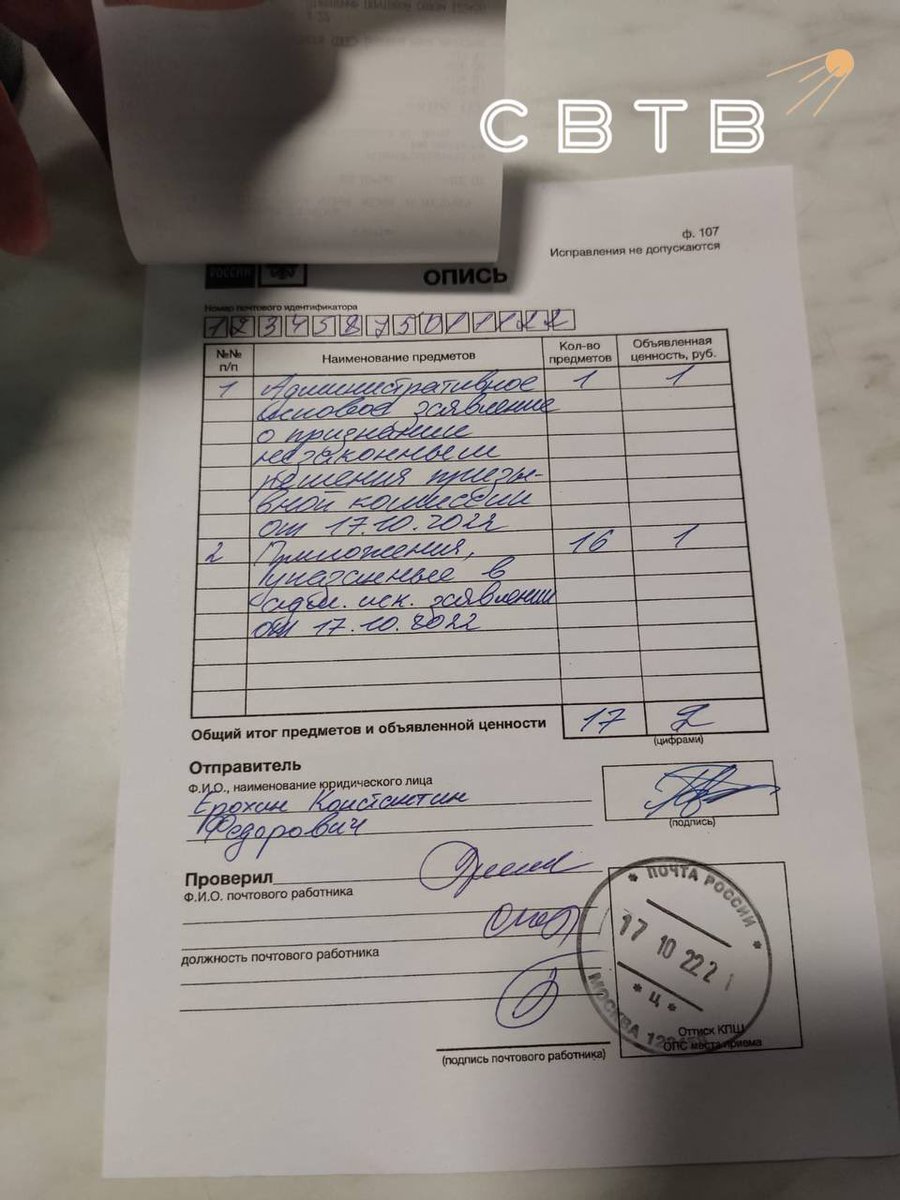 СВТВ
ф. 107
Исправления не допускаются
РОССИИ
ОПИСЬ
Номер почтового идентификатора
№№ п/п
Наименование предметов
Кол-во предметов
Объявленная ценность, руб.
1 Административное 1 1
исковое заявление
о признании
незаконным
решения призы-
вной комиссии
от 17.10.2022
2 Приложения, 16 1
указанные в
адм. иск. заявлении
от 17.10.2022
Общий итог предметов и объявленной ценности 17 2
(цифрами)
Отправитель
Ф.И.О., наименование юридического лица
Ерохин Константин
Федорович
(подпись)
Проверил
Ф.И.О. почтового работника
должность почтового работника
(подпись почтового работника)
ПОЧТА РОССИИ
17 10 22 2
* Ц *
МОСКВА
Оттиск КПШ
ОПС места приема